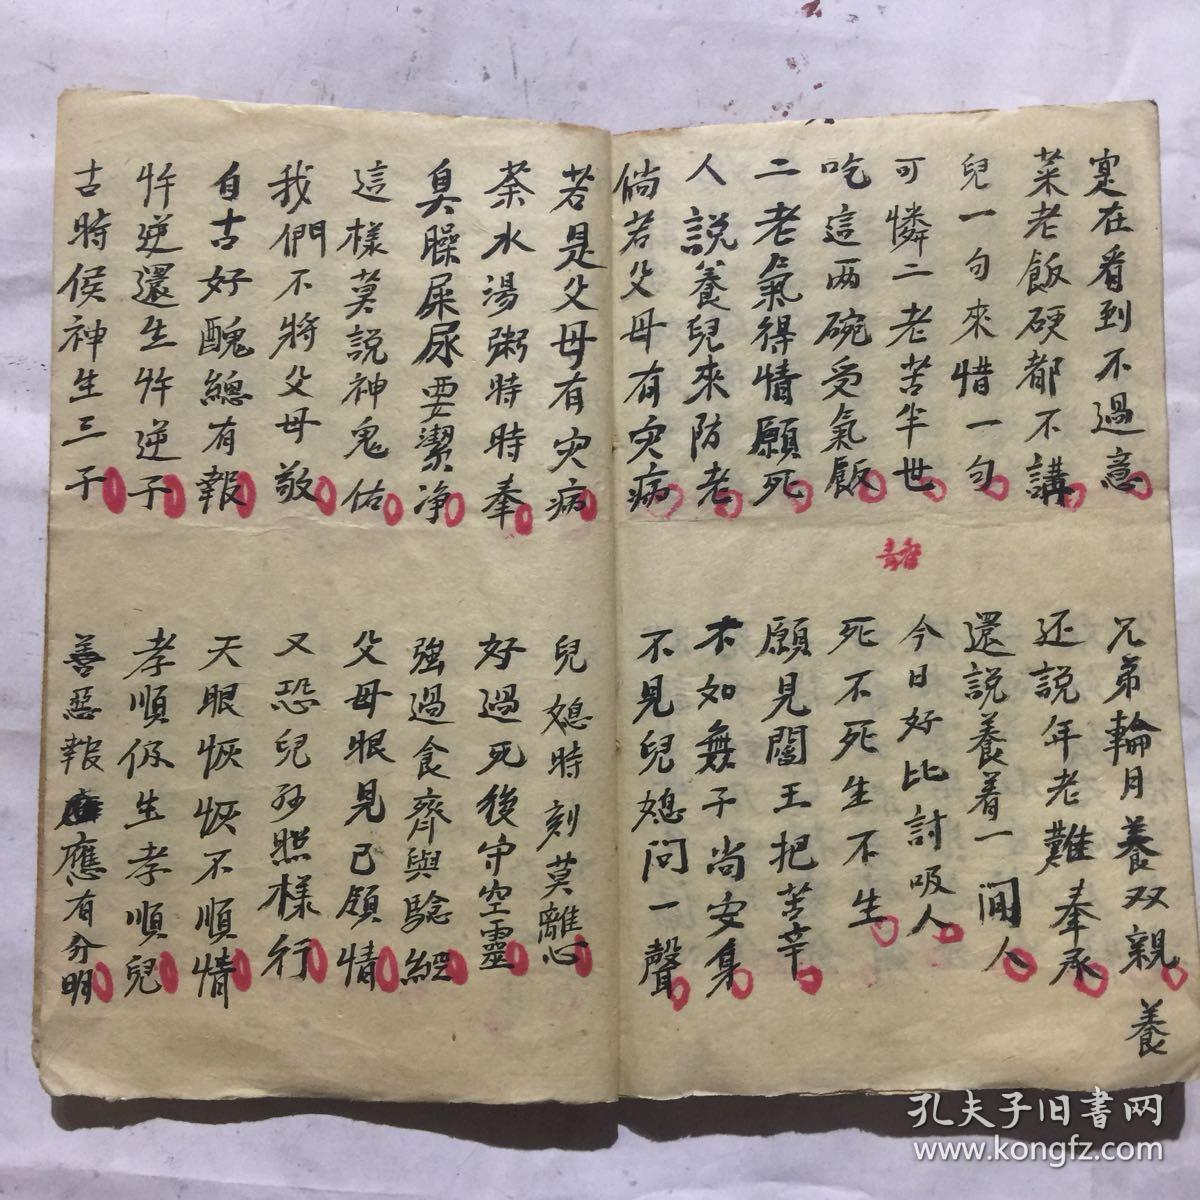 寔在看到不過意
兄弟輪月養双親
養
菜老飯硬都不講
还說年老難奉承
兒一句來惜一句
還說養着一间人
可憐二老苦半世
今日好比討吸人
吃這両碗受氣飯
死不死生不生
二老氣得情願死
願見閻王把苦辛
人說養兒來防老
不如無子尚安集
倘若父母有灾病
不見兒媳问一聲
若是父母有灾病
兒媳時刻莫離心
茶水湯粥時時奉
好過死後守空靈
臭臊屎尿要潔净
強過食齊與騐經
這樣莫說神鬼佑
父母眼見已領情
我們不將父母敬
又恐兒孙照樣行
自古好醜總有報
天眼恢恢不順情
忤逆還生忤逆子
孝順仍生孝順兒
古時侯神生三子
善惡報應有分明
孔夫子旧書网
www.kongfz.com